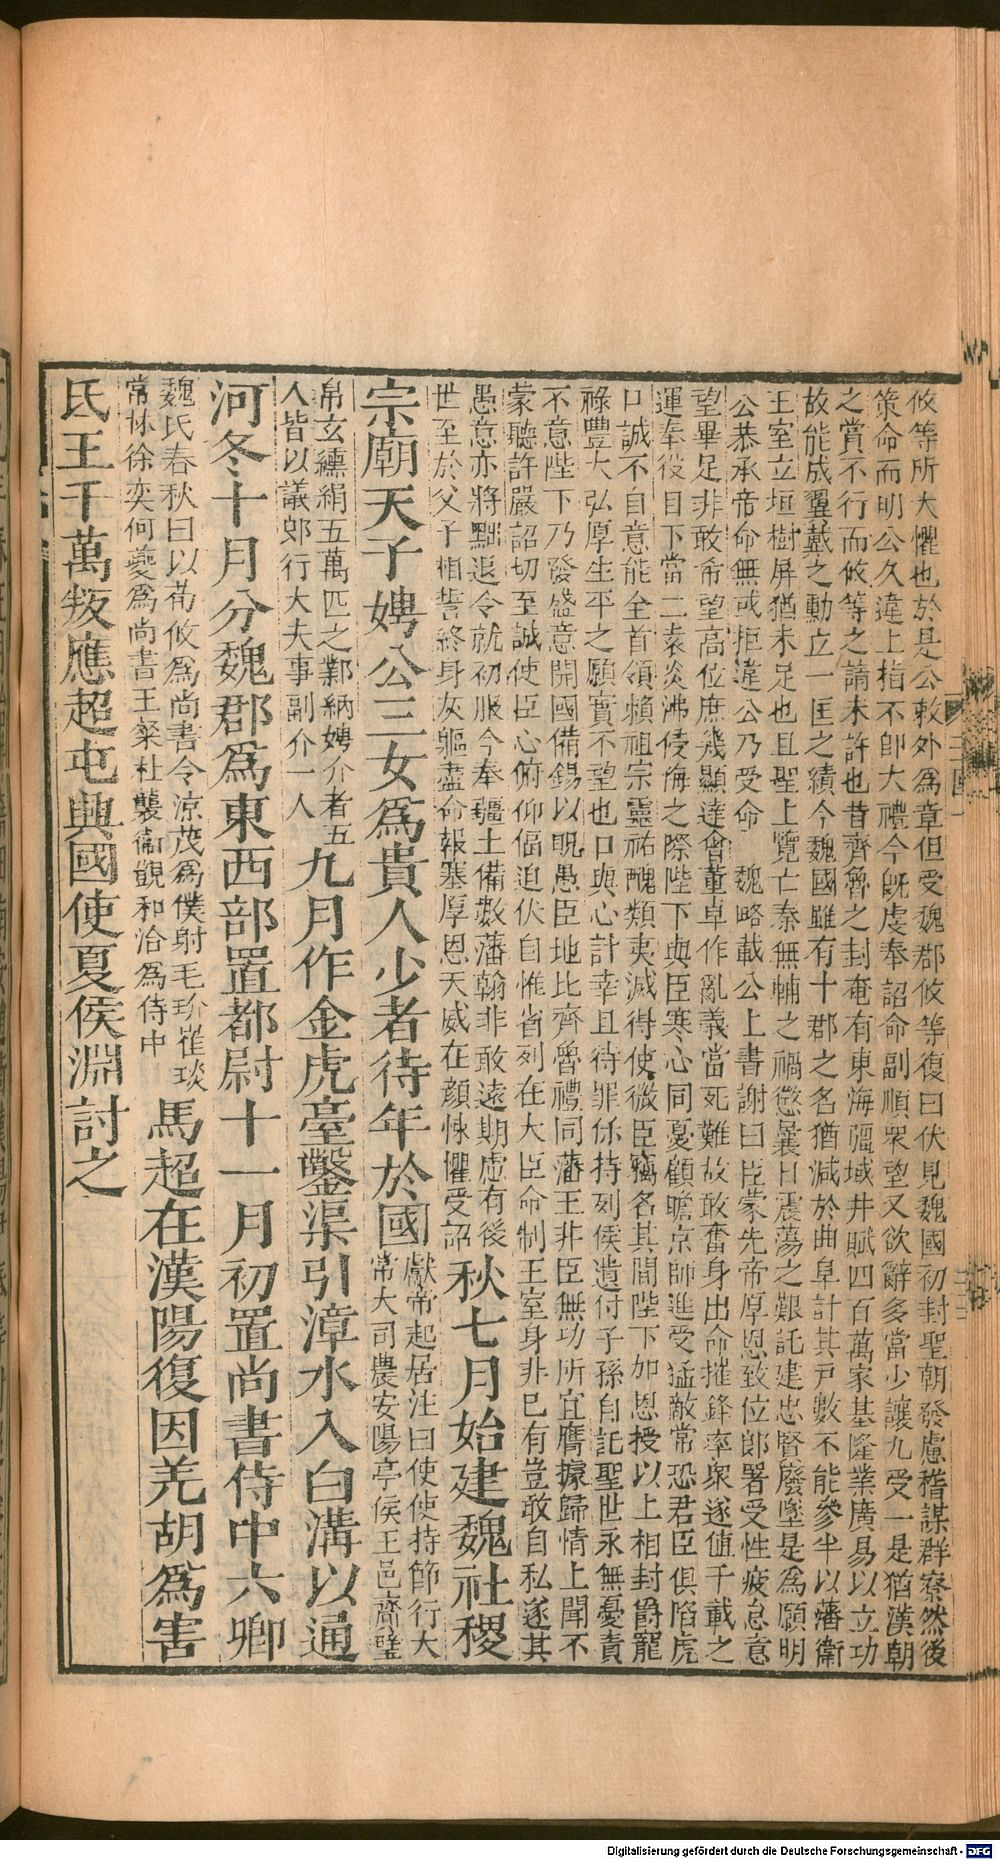 攸等所大懼也於是公敕外爲章但受魏郡攸等復曰伏見魏國初封聖朝發慮稽謀群寮然後
策命而明公久違上指不卽大禮今旣虔奉詔命副順衆望又欲辭多當少讓九受一是猶漢朝
之賞不行而攸等之請未許也昔齊魯之封奄有東海疆域井賦四百萬家基隆業廣易以立功
故能成翼戴之勳立一匡之績今魏國雖有十郡之名猶減於曲阜計其戸數不能參半以藩衛
王室立垣樹屏猶未足也且聖上覽亡秦無輔之禍懲曩日震蕩之艱託建忠賢廢墜是爲願明
公恭承帝命無或拒違公乃受命 魏略載公上書謝曰臣蒙先帝厚恩致位郎署受性疲怠意
望畢足非敢希望高位庶幾顯達會董卓作亂義當死難故敢奮身出命摧鋒率衆遂値千載之
運奉役目下當二袁炎沸侵侮之際陛下與臣寒心同憂顧瞻京師進受猛敵常恐君臣俱陷虎
口誠不自意能全首領賴祖宗靈祐醜類夷滅得使微臣竊名其間陛下加恩授以上相封爵寵
祿豐大弘厚生平之願實不望也口與心計幸且待罪係持列侯遺付子孫自託聖世永無憂責
不意陛下乃發盛意開國備錫以貺愚臣地比齊魯禮同藩王非臣無功所宜膺據歸情上聞不
蒙聽許嚴詔切至誠使臣心俯仰偪迫伏自惟省列在大臣命制王室身非已有豈敢自私遂其
愚意亦將黜退令就初服今奉疆土備數藩翰非敢遠期慮有後
世至於父子相誓終身灰軀盡命報塞厚恩天威在顔悚懼受詔
秋七月始建魏社稷
宗廟天子娉公三女爲貴人少者待年於國
獻帝起居注曰使使持節行大
常大司農安陽亭侯王邑齎璧
帛玄纁絹五萬匹之鄴納娉介者五
人皆以議郎行大夫事副介一人
九月作金虎臺鑿渠引漳水入白溝以通
河冬十月分魏郡爲東西部置都尉十一月初置尚書侍中六卿
魏氏春秋曰以荀攸爲尚書令涼茂爲僕射毛玠崔琰
常林徐奕何夔爲尚書王粲杜襲衞覬和洽爲侍中
馬超在漢陽復因羌胡爲害
氐王千萬叛應超屯興國使夏侯淵討之
Digitalisierung gefördert durch die Deutsche Forschungsgemeinschaft - DFG